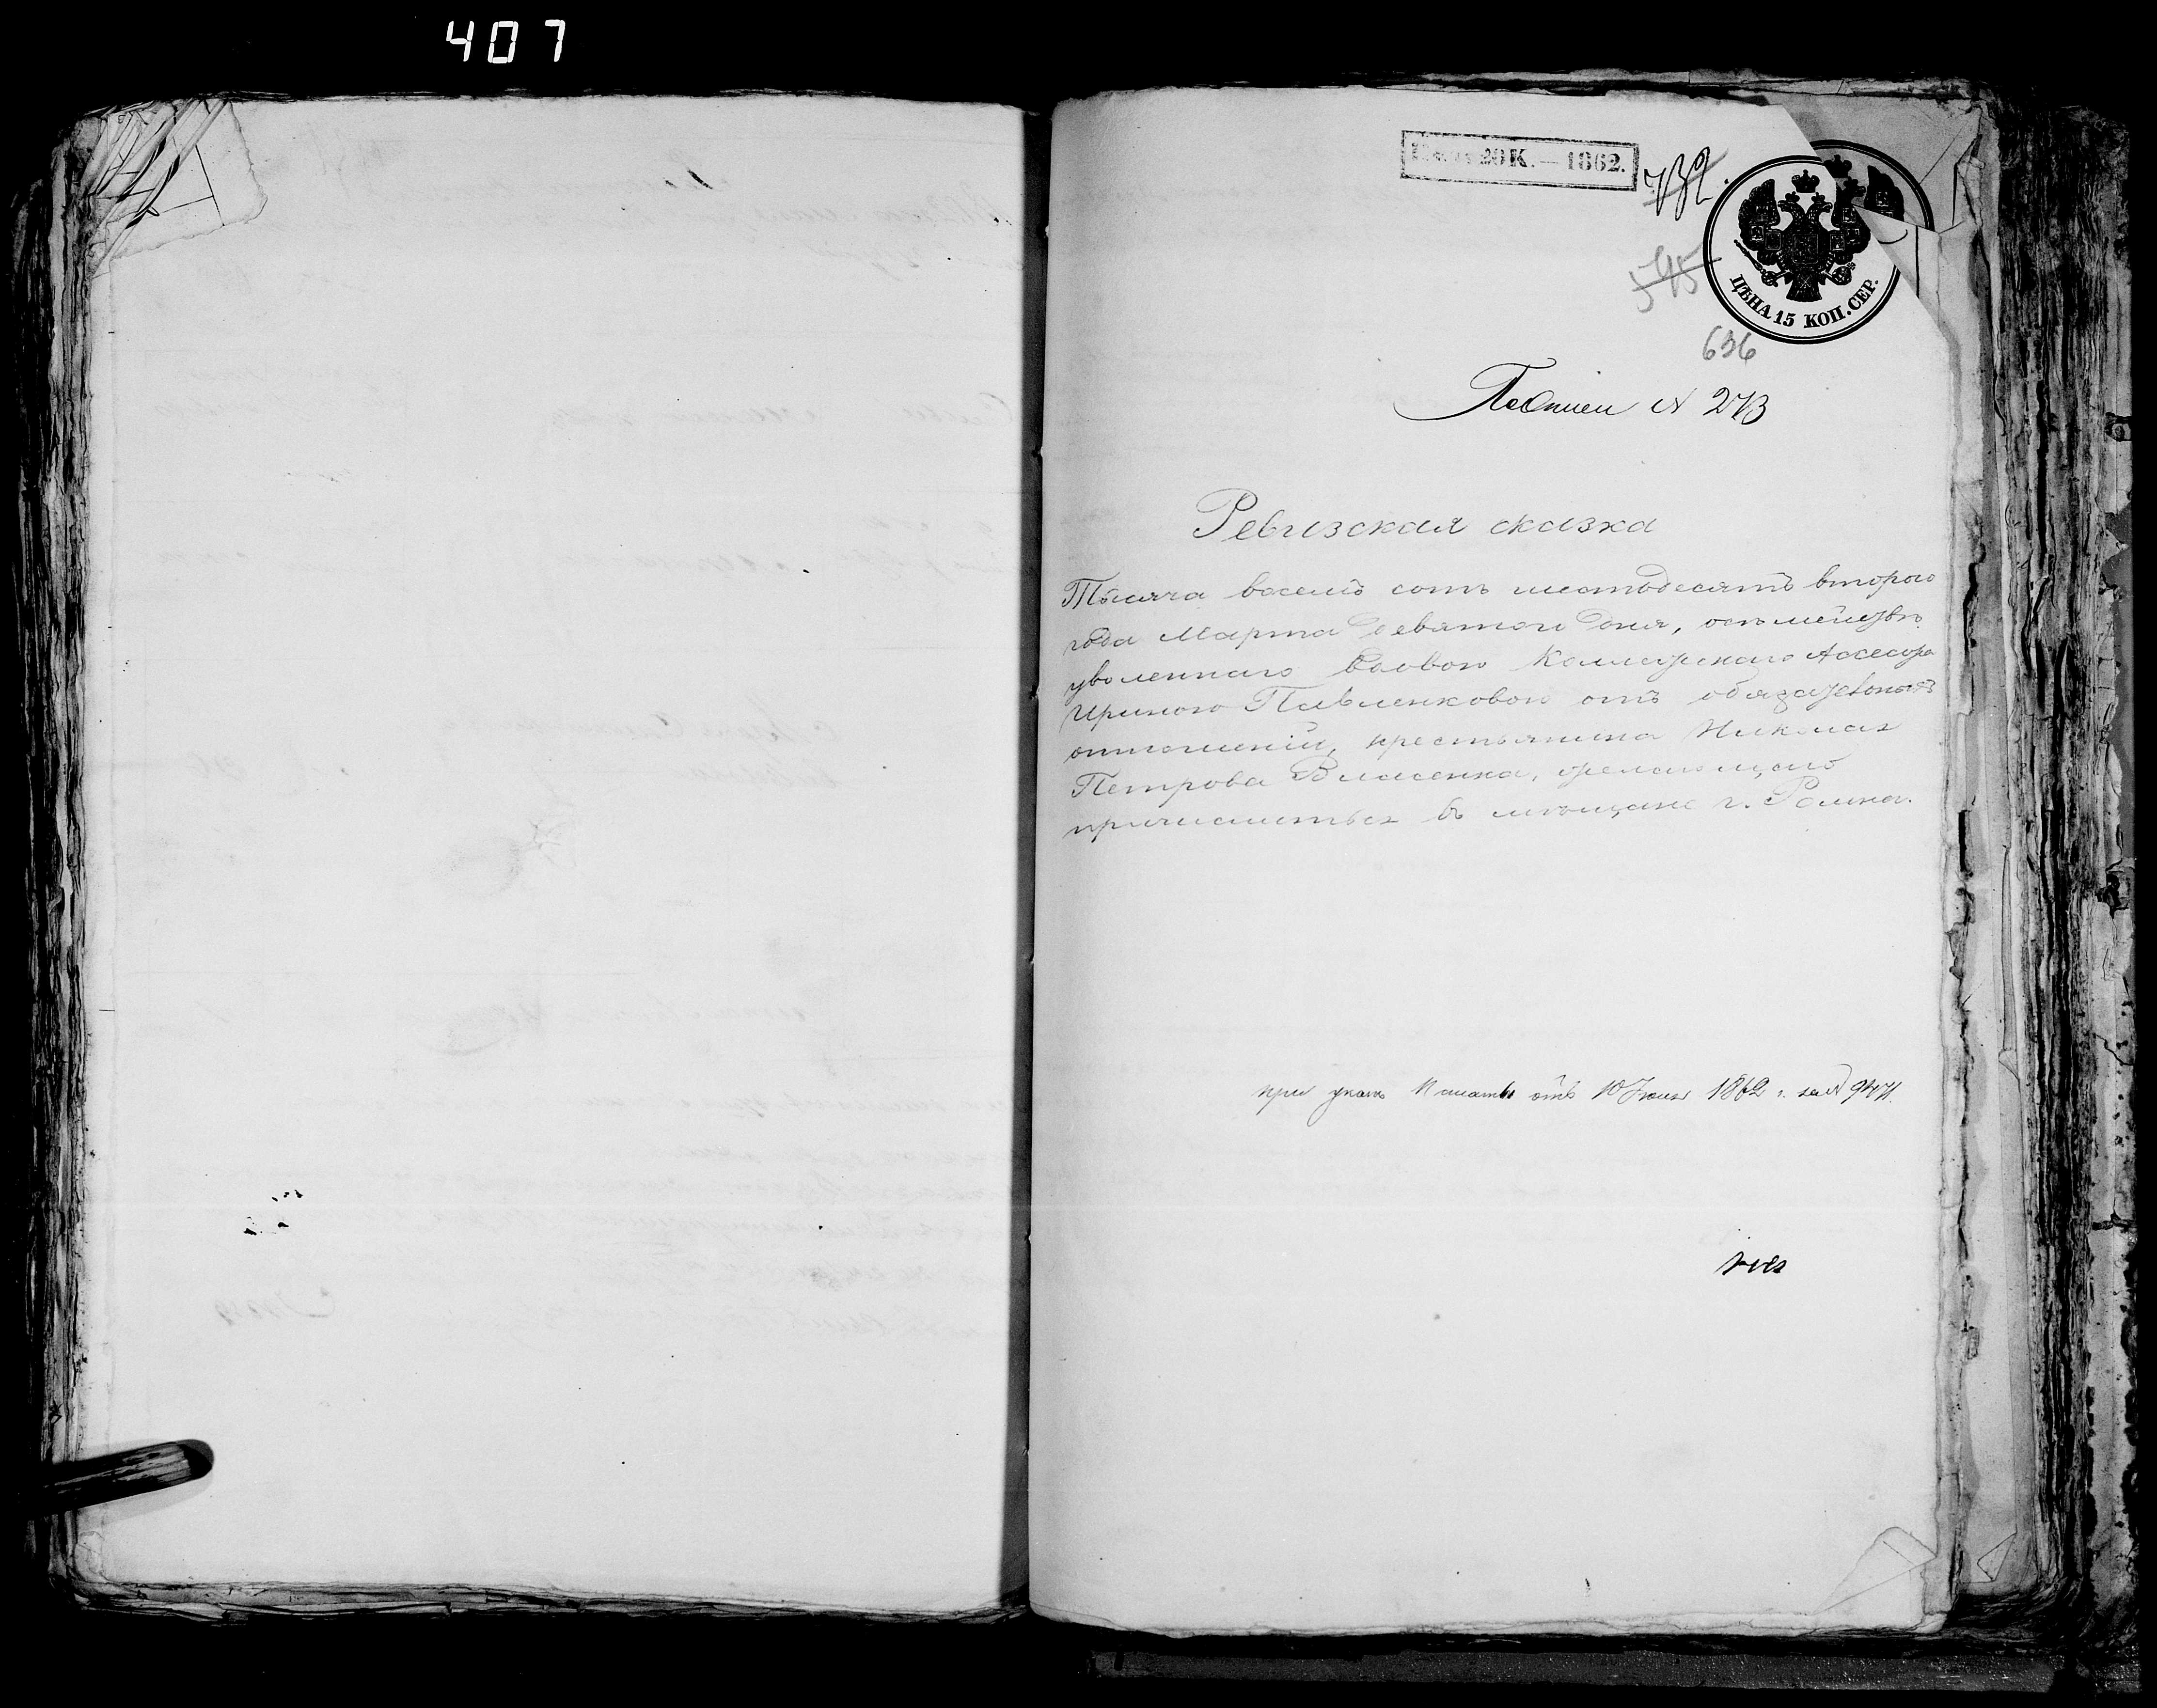 407
Цѣна 20 К. — 1862.
732.
545
ЦѢНА 15 КОП. СЕР.
636
По описи N 273
Ревизская сказка
Тысяча восемь сотъ шестьдесятъ втораго
года Марта девятого дня, о семействѣ
уволеннаго вдовою Коллежскаго Ассесора
Ириною Павленковою отъ обязательныхъ
отношеній, крестьянина Николая
Петрова Власенка, желающаго
причислиться въ мѣщане г. Ромна.
при указѣ Палаты отъ 10 Іюля 1862 г. за N